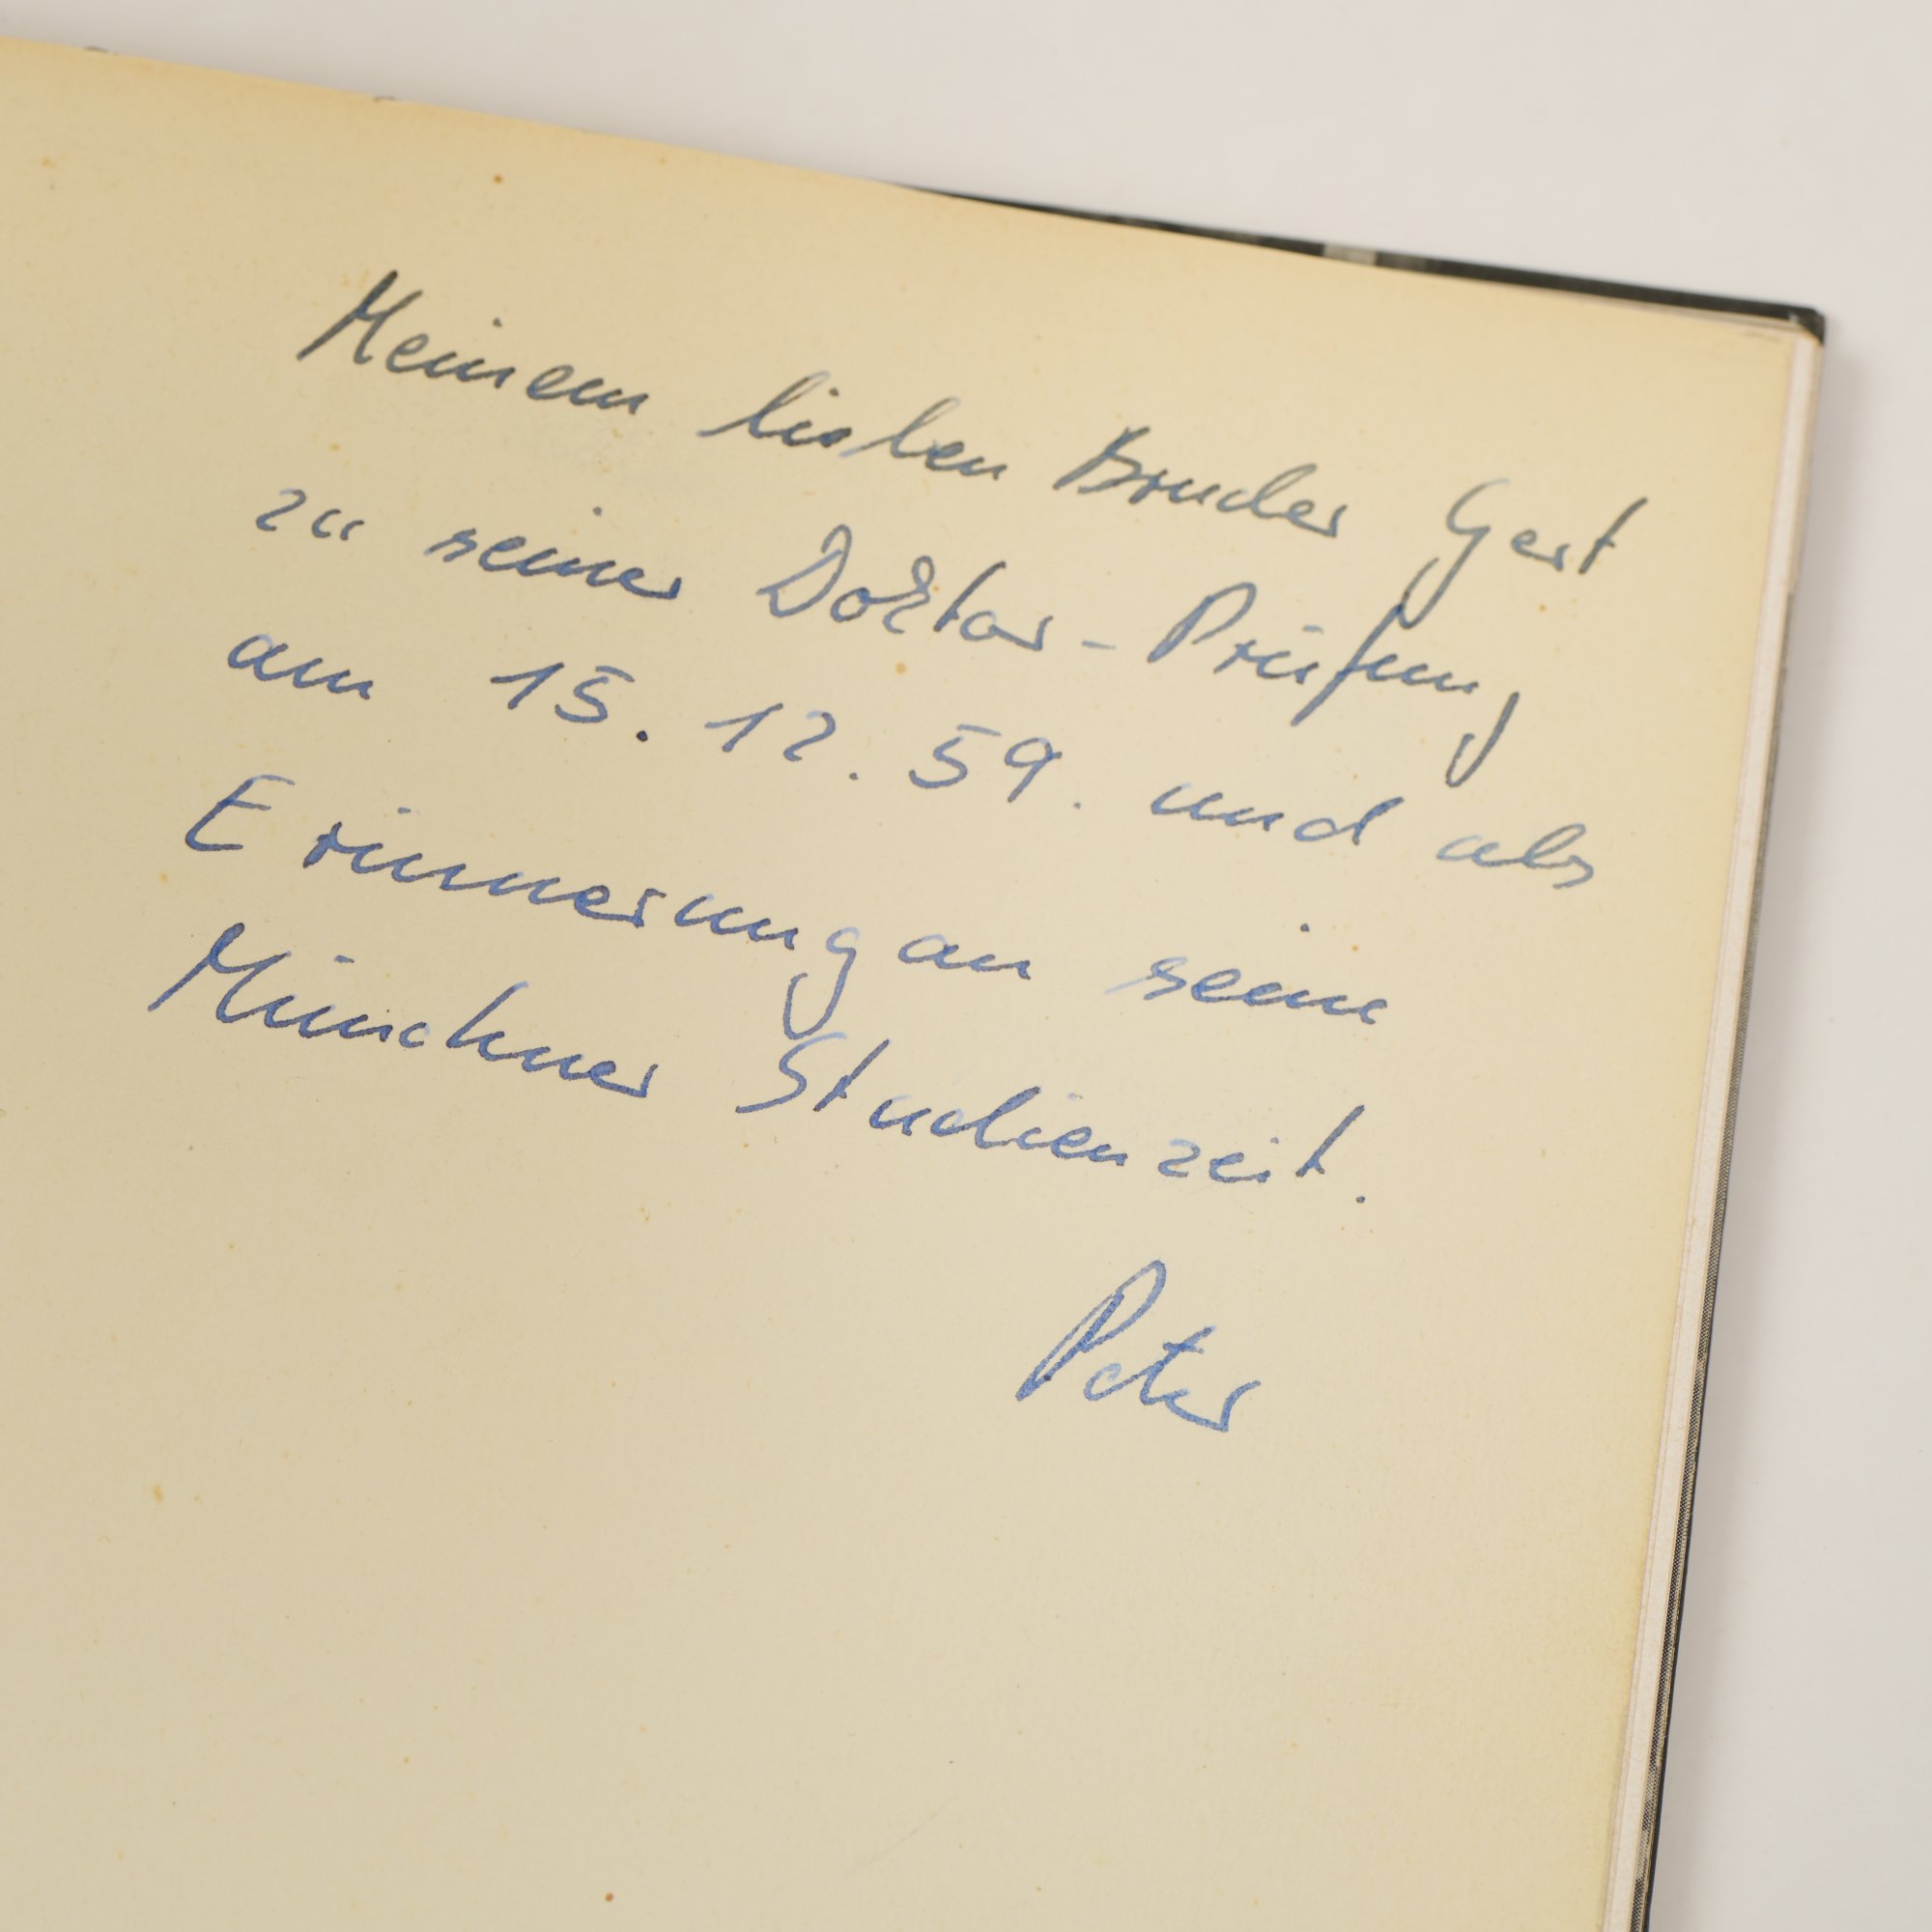 Meinem lieben Bruder Gert
zu seiner Doktor-Prüfung
am 15.12.59. und als
Erinnerung an seine
Münchner Studienzeit.
Peter